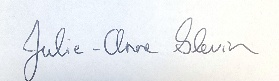 Julie-Anne Slevin